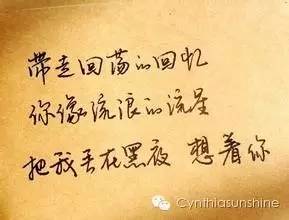 带走回荡的回忆
你像流浪的流星
把我丢在黑夜 想着你
Cynthiasunshine